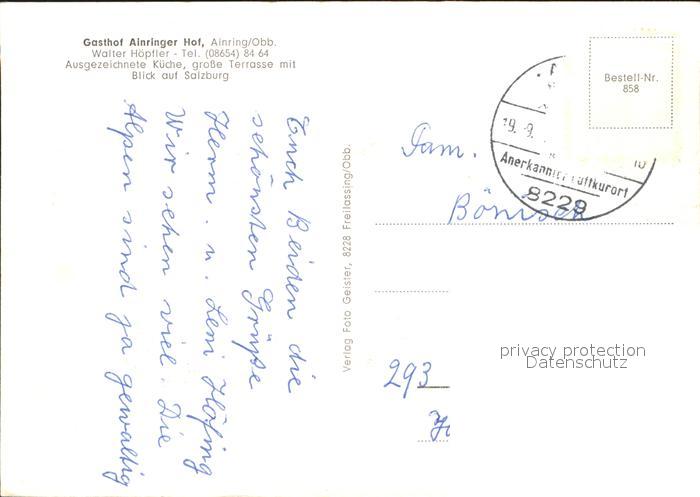 Gasthof Ainringer Hof, Ainring/Obb.
Walter Höpfler - Tel. (08654) 84 64
Ausgezeichnete Küche, große Terrasse mit
Blick auf Salzburg
Euch Beiden die
schönsten Grüße
Herm. u. Leni Höfing
Wir sehen viel. Die
Alpen sind ja gewaltig
Verlag Foto Geister, 8228 Freilassing/Obb.
Bestell-Nr.
858
19.9.
10
Anerkannter Luftkurort
8228
Fam.
Bönisch
privacy protection
Datenschutz
293